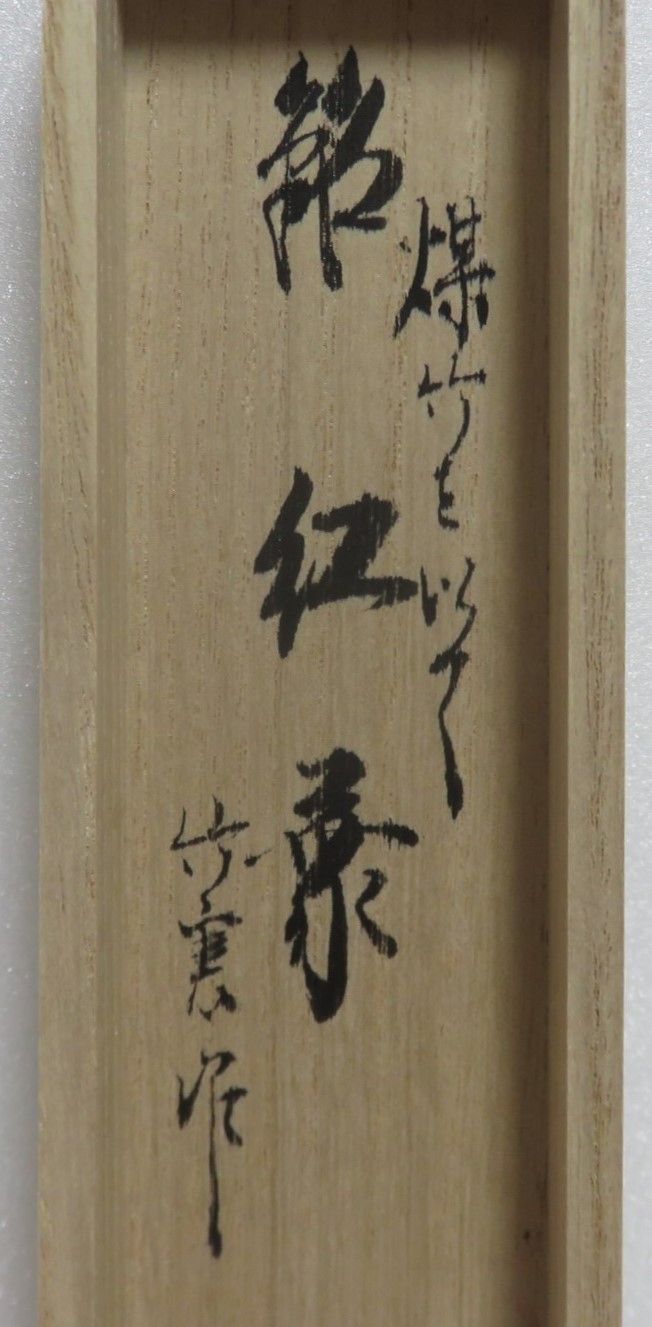 煤竹を以て
銘 紅葉
竹裏作